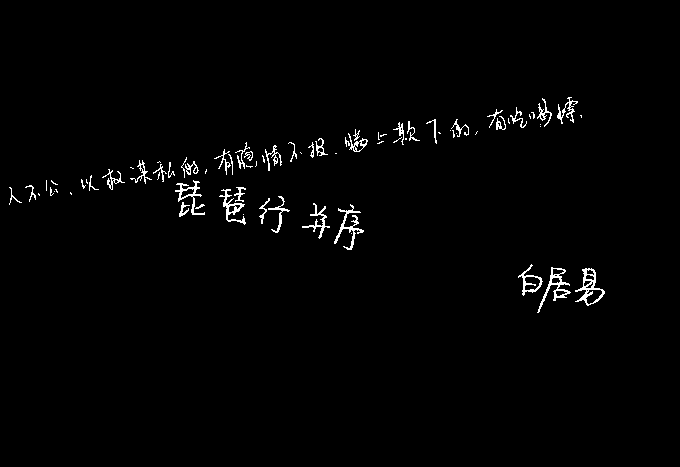 人不公、以权谋私的，有隐情不报、瞒上欺下的，有吃喝嫖、
琵琶行 并序
白居易